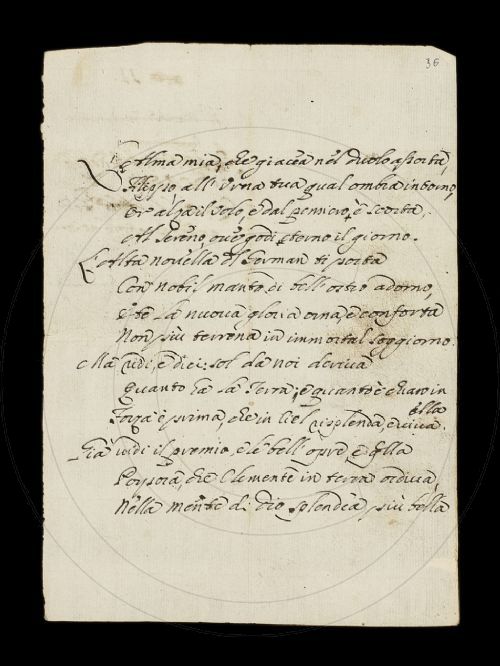 36
L'Alma mia, che giacea nel duolo assorta,
Alessio all'Urna tua qual ombra intorno,
Or alza il volo, e dal pensiero è scorta
Al sereno, ove godi eterno il giorno.
E l'Alta novella al German ti porta
Con nobil manto di bell'ostro adorno,
e te la nuova gloria orna, e conforta
Non più terrena in immortal soggiorno.
Ma ridi, e dici: sol da noi deriva
Quanto ha la Terra, e quanto è chiaro in
ella
Forza è prima, che in Ciel risplenda, e viva.
Già vidi il premio, e le bell'opre, e Ella
Porpora, che Clemente in terra ordiva,
Nella mente di Dio splendea più bella